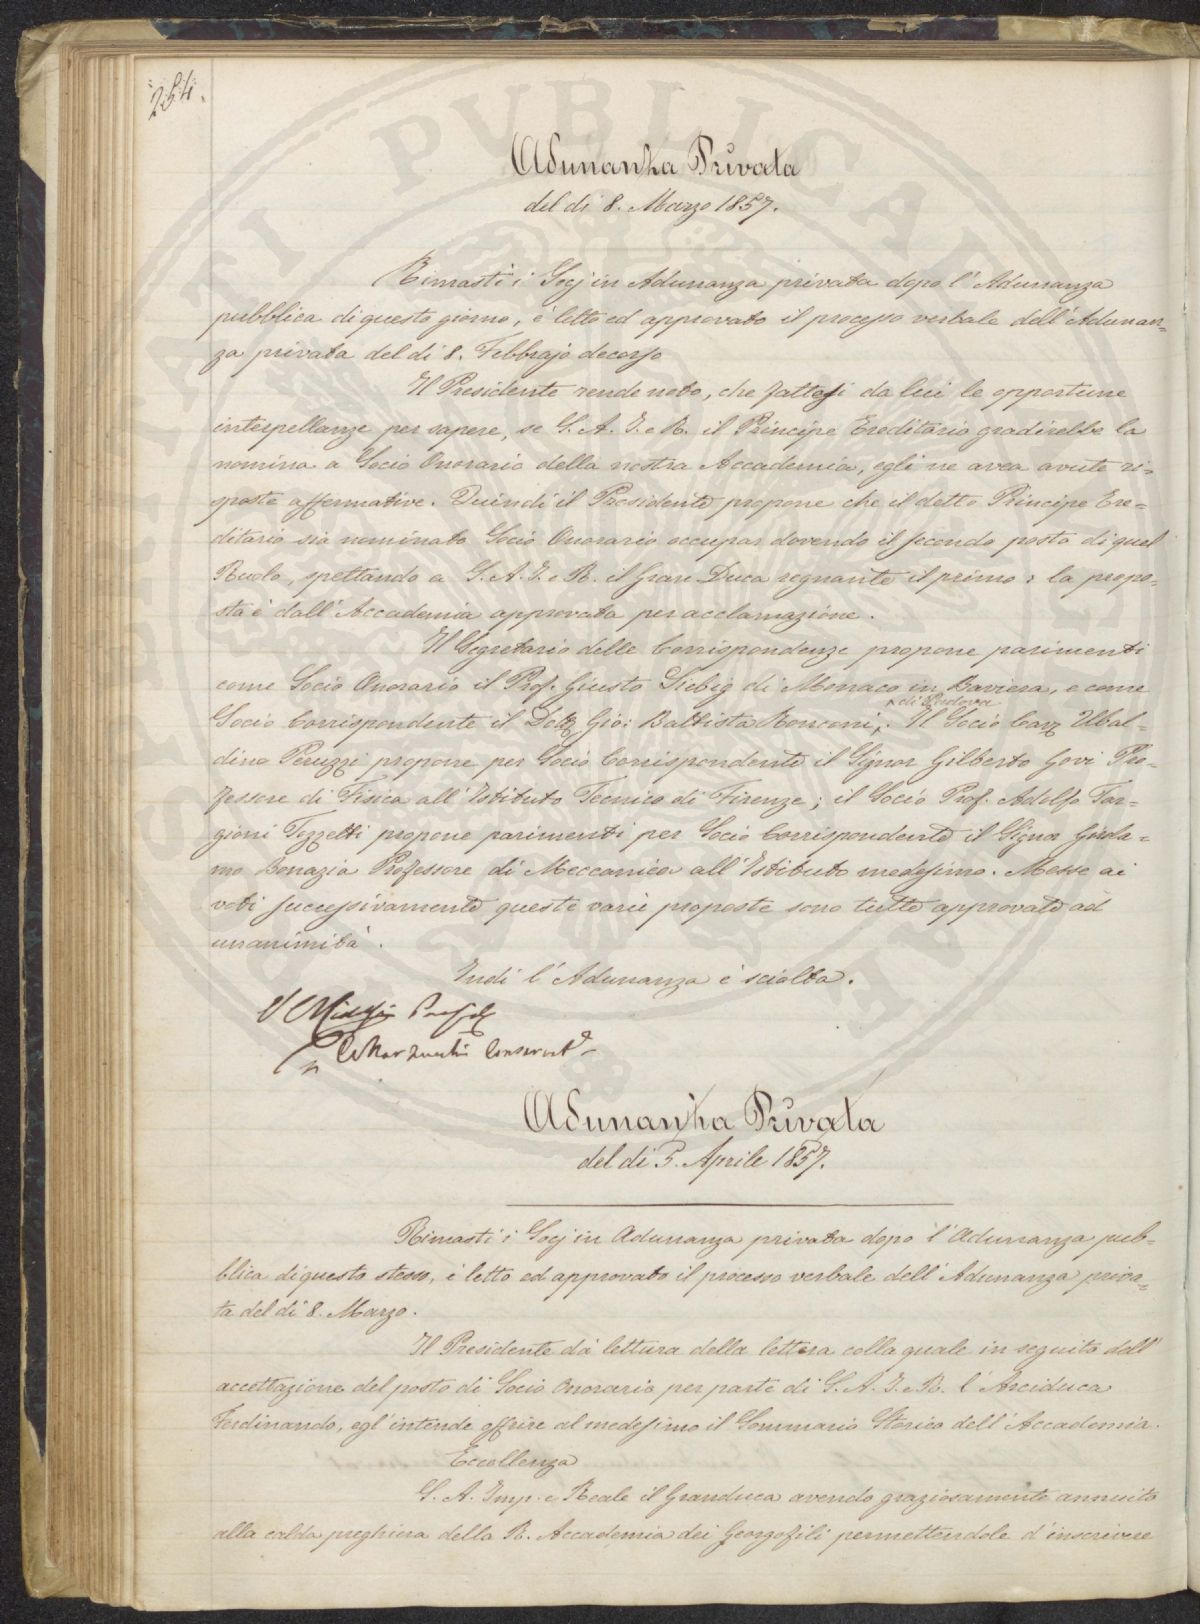 254.
Adunanza Privata
del dì 8. Marzo 1857.
Rimasti i Socj in Adunanza privata dopo l'Adunanza
pubblica di questo giorno, è letto ed approvato il processo verbale dell'Adunan=
za privata del dì 8. Febbrajo decorso
Il Presidente rende noto, che fattesi da lui le opportune
interpellanze per sapere, se S. A. I. e R. il Principe Ereditario gradirebbe la
nomina a Socio Onorario della nostra Accademia, egli ne avea avute ri=
sposte affermative. Quindi il Presidente propone che il detto Principe Ere=
ditario sia nominato Socio Onorario occupar dovendo il secondo posto di quel
Ruolo, spettando a S. A. I. e R. il Gran Duca regnante il primo: la propo=
sta è dall'Accademia approvata per acclamazione.
Il Segretario delle Corrispondenze propone parimenti
come Socio Onorario il Prof. Giusto Liebig di Monaco in Baviera, e come
di Padova
Socio Corrispondente il Dott. Gio: Battista Ronconi. Il Socio Cav. Ubal=
dino Peruzzi propone per Socio Corrispondente il Signor Gilberto Govi Pro=
fessore di Fisica all'Istituto Tecnico di Firenze; il Socio Prof. Adolfo Tar=
gioni Tozzetti propone parimenti per Socio Corrispondente il Signor Girola=
mo Bonazia Professore di Meccanica all'Istituto medesimo. Messe ai
voti successivamente queste varie proposte sono tutte approvate ad
unanimità.
Indi l'Adunanza è sciolta.
V
C Marzucchi Conservat
Adunanza Privata
del dì 5. Aprile 1857.
Rimasti i Socj in Adunanza privata dopo l'Adunanza pub=
blica di questo stesso, è letto ed approvato il processo verbale dell'Adunanza priva=
ta del dì 8. Marzo.
Il Presidente dà lettura della lettera colla quale in seguito dell'
accettazione del posto di Socio Onorario per parte di S. A. I. e R. l'Arciduca
Ferdinando, egl'intende offrire al medesimo il Sommario Storico dell'Accademia.
Eccellenza
S. A. Imp. e Reale il Granduca avendo graziosamente annuito
alla calda preghiera della R. Accademia dei Georgofili permettendole d'inscrivere